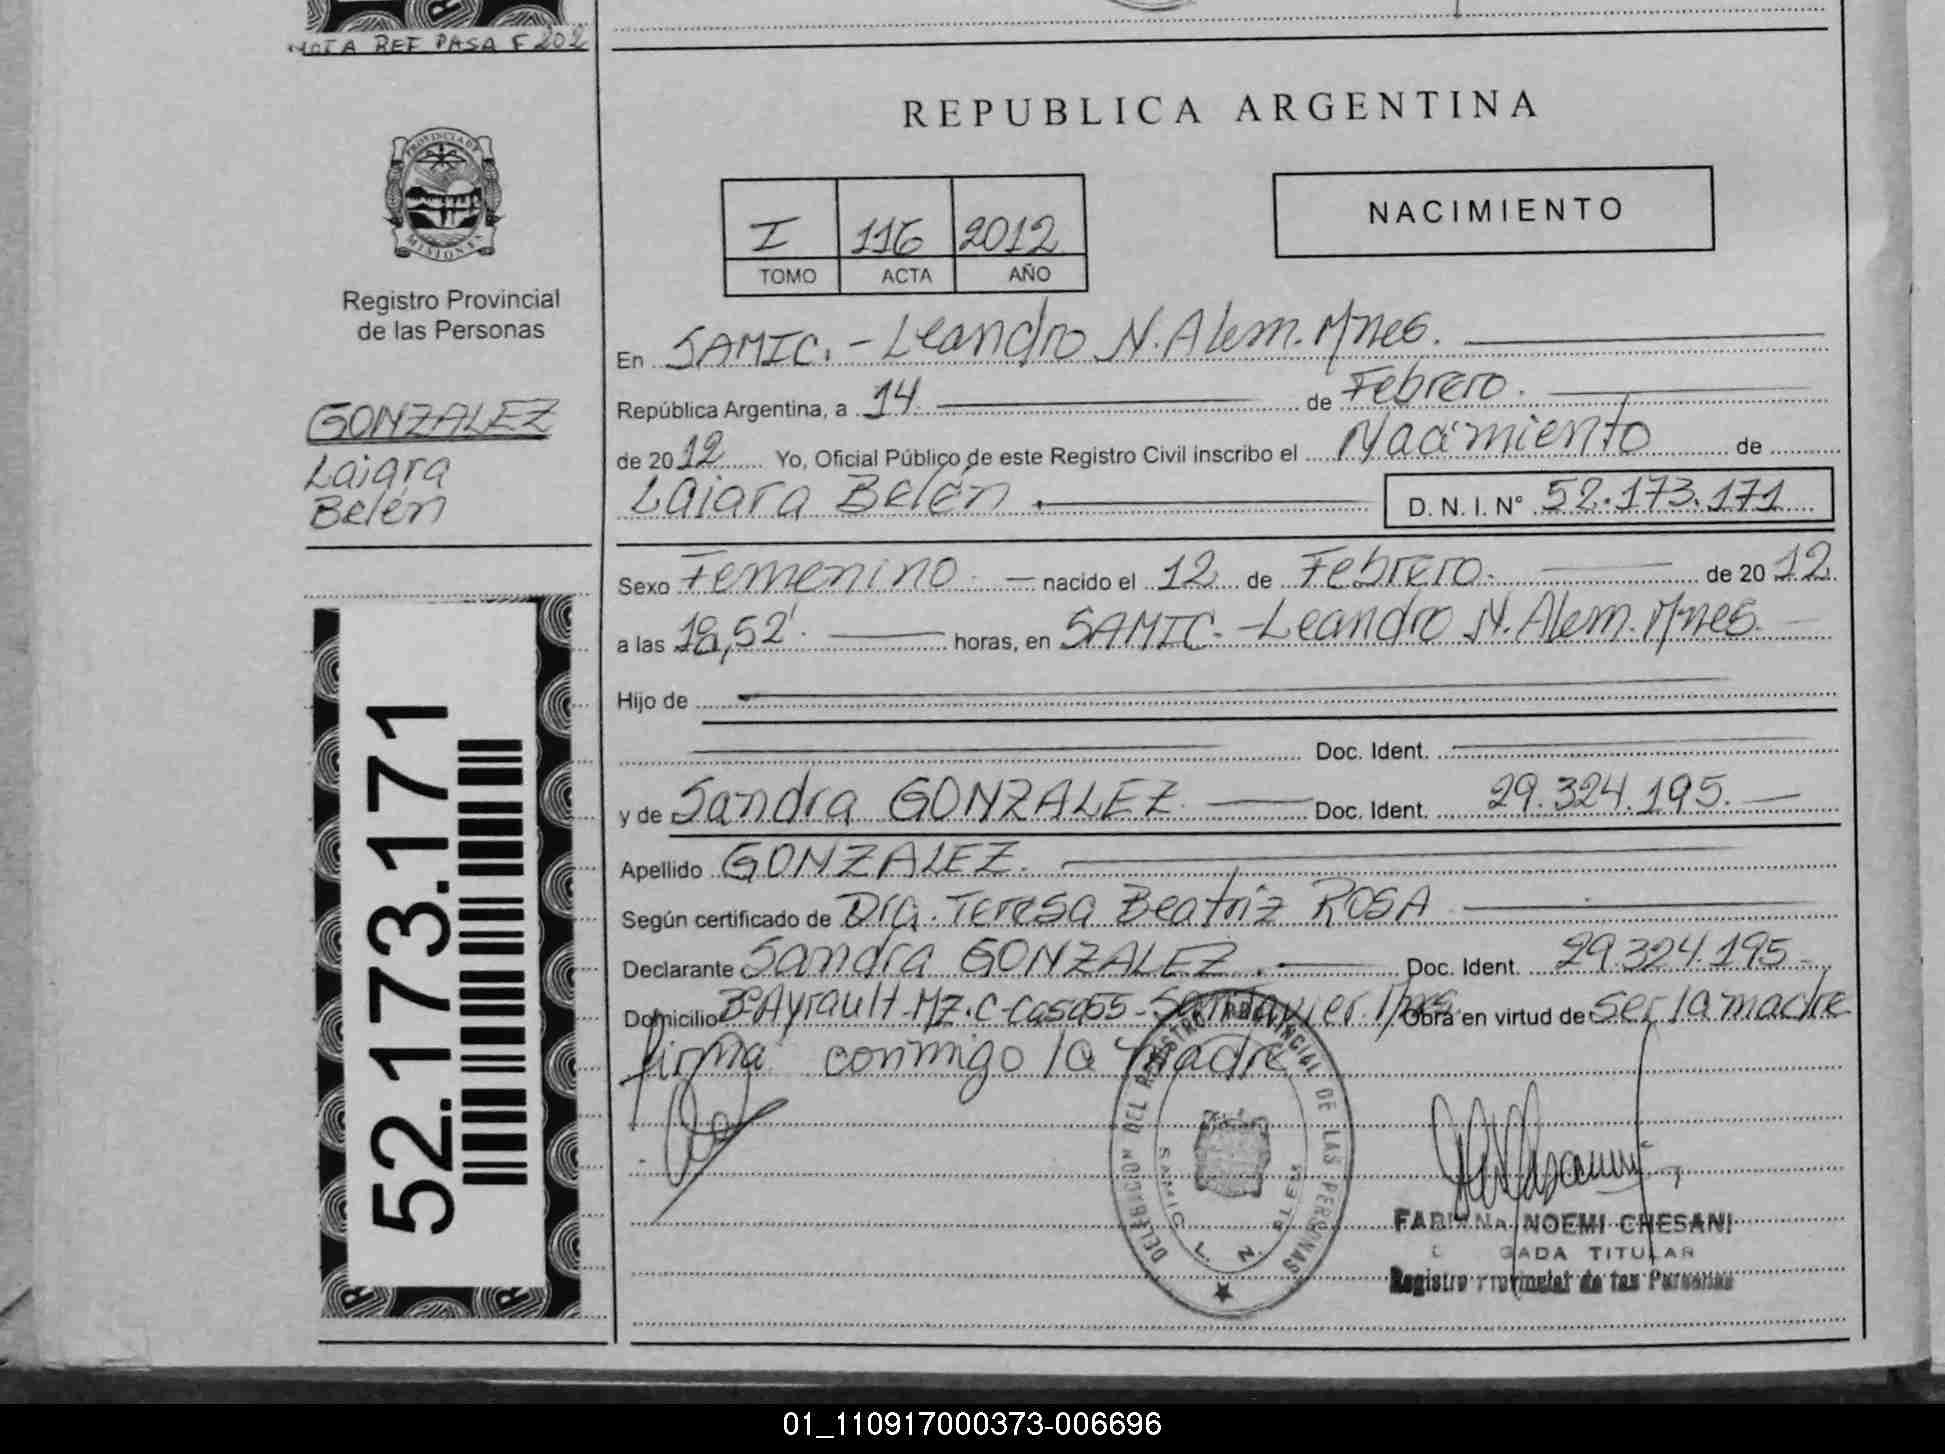 NOTA REF PASA F 202
REPUBLICA ARGENTINA
PROVINCIA DE
MISIONES
Registro Provincial
de las Personas
I 116 2012
TOMO ACTA AÑO
NACIMIENTO
GONZALEZ
Laiara
Belén
En SAMIC. - Leandro N. Alem. Mnes.
República Argentina, a 14 de Febrero.
de 2012 Yo, Oficial Público de este Registro Civil inscribo el Nacimiento de
Laiara Belén. D. N. I. N° 52.173.171
Sexo Femenino. nacido el 12 de Febrero. de 2012
a las 18,52'. horas, en SAMIC. - Leandro N. Alem. Mnes
Hijo de
Doc. Ident.
y de Sandra GONZALEZ. Doc. Ident. 29.324.195.
Apellido GONZALEZ.
Según certificado de Dra. Teresa Beatriz ROSA
Declarante Sandra GONZALEZ. Doc. Ident. 29.324.195
Domicilio B° Ayrault-Mz.C-casa55-San Javier. Mnes Obra en virtud de ser la madre
firma conmigo la madre
52.173.171
DELEGACION DEL REGISTRO PROVINCIAL DE LAS PERSONAS
SAMIC L. N. ALEM
FABIANA NOEMI CHESANI
GADA TITULAR
Registro Provincial de las Personas
01_110917000373-006696